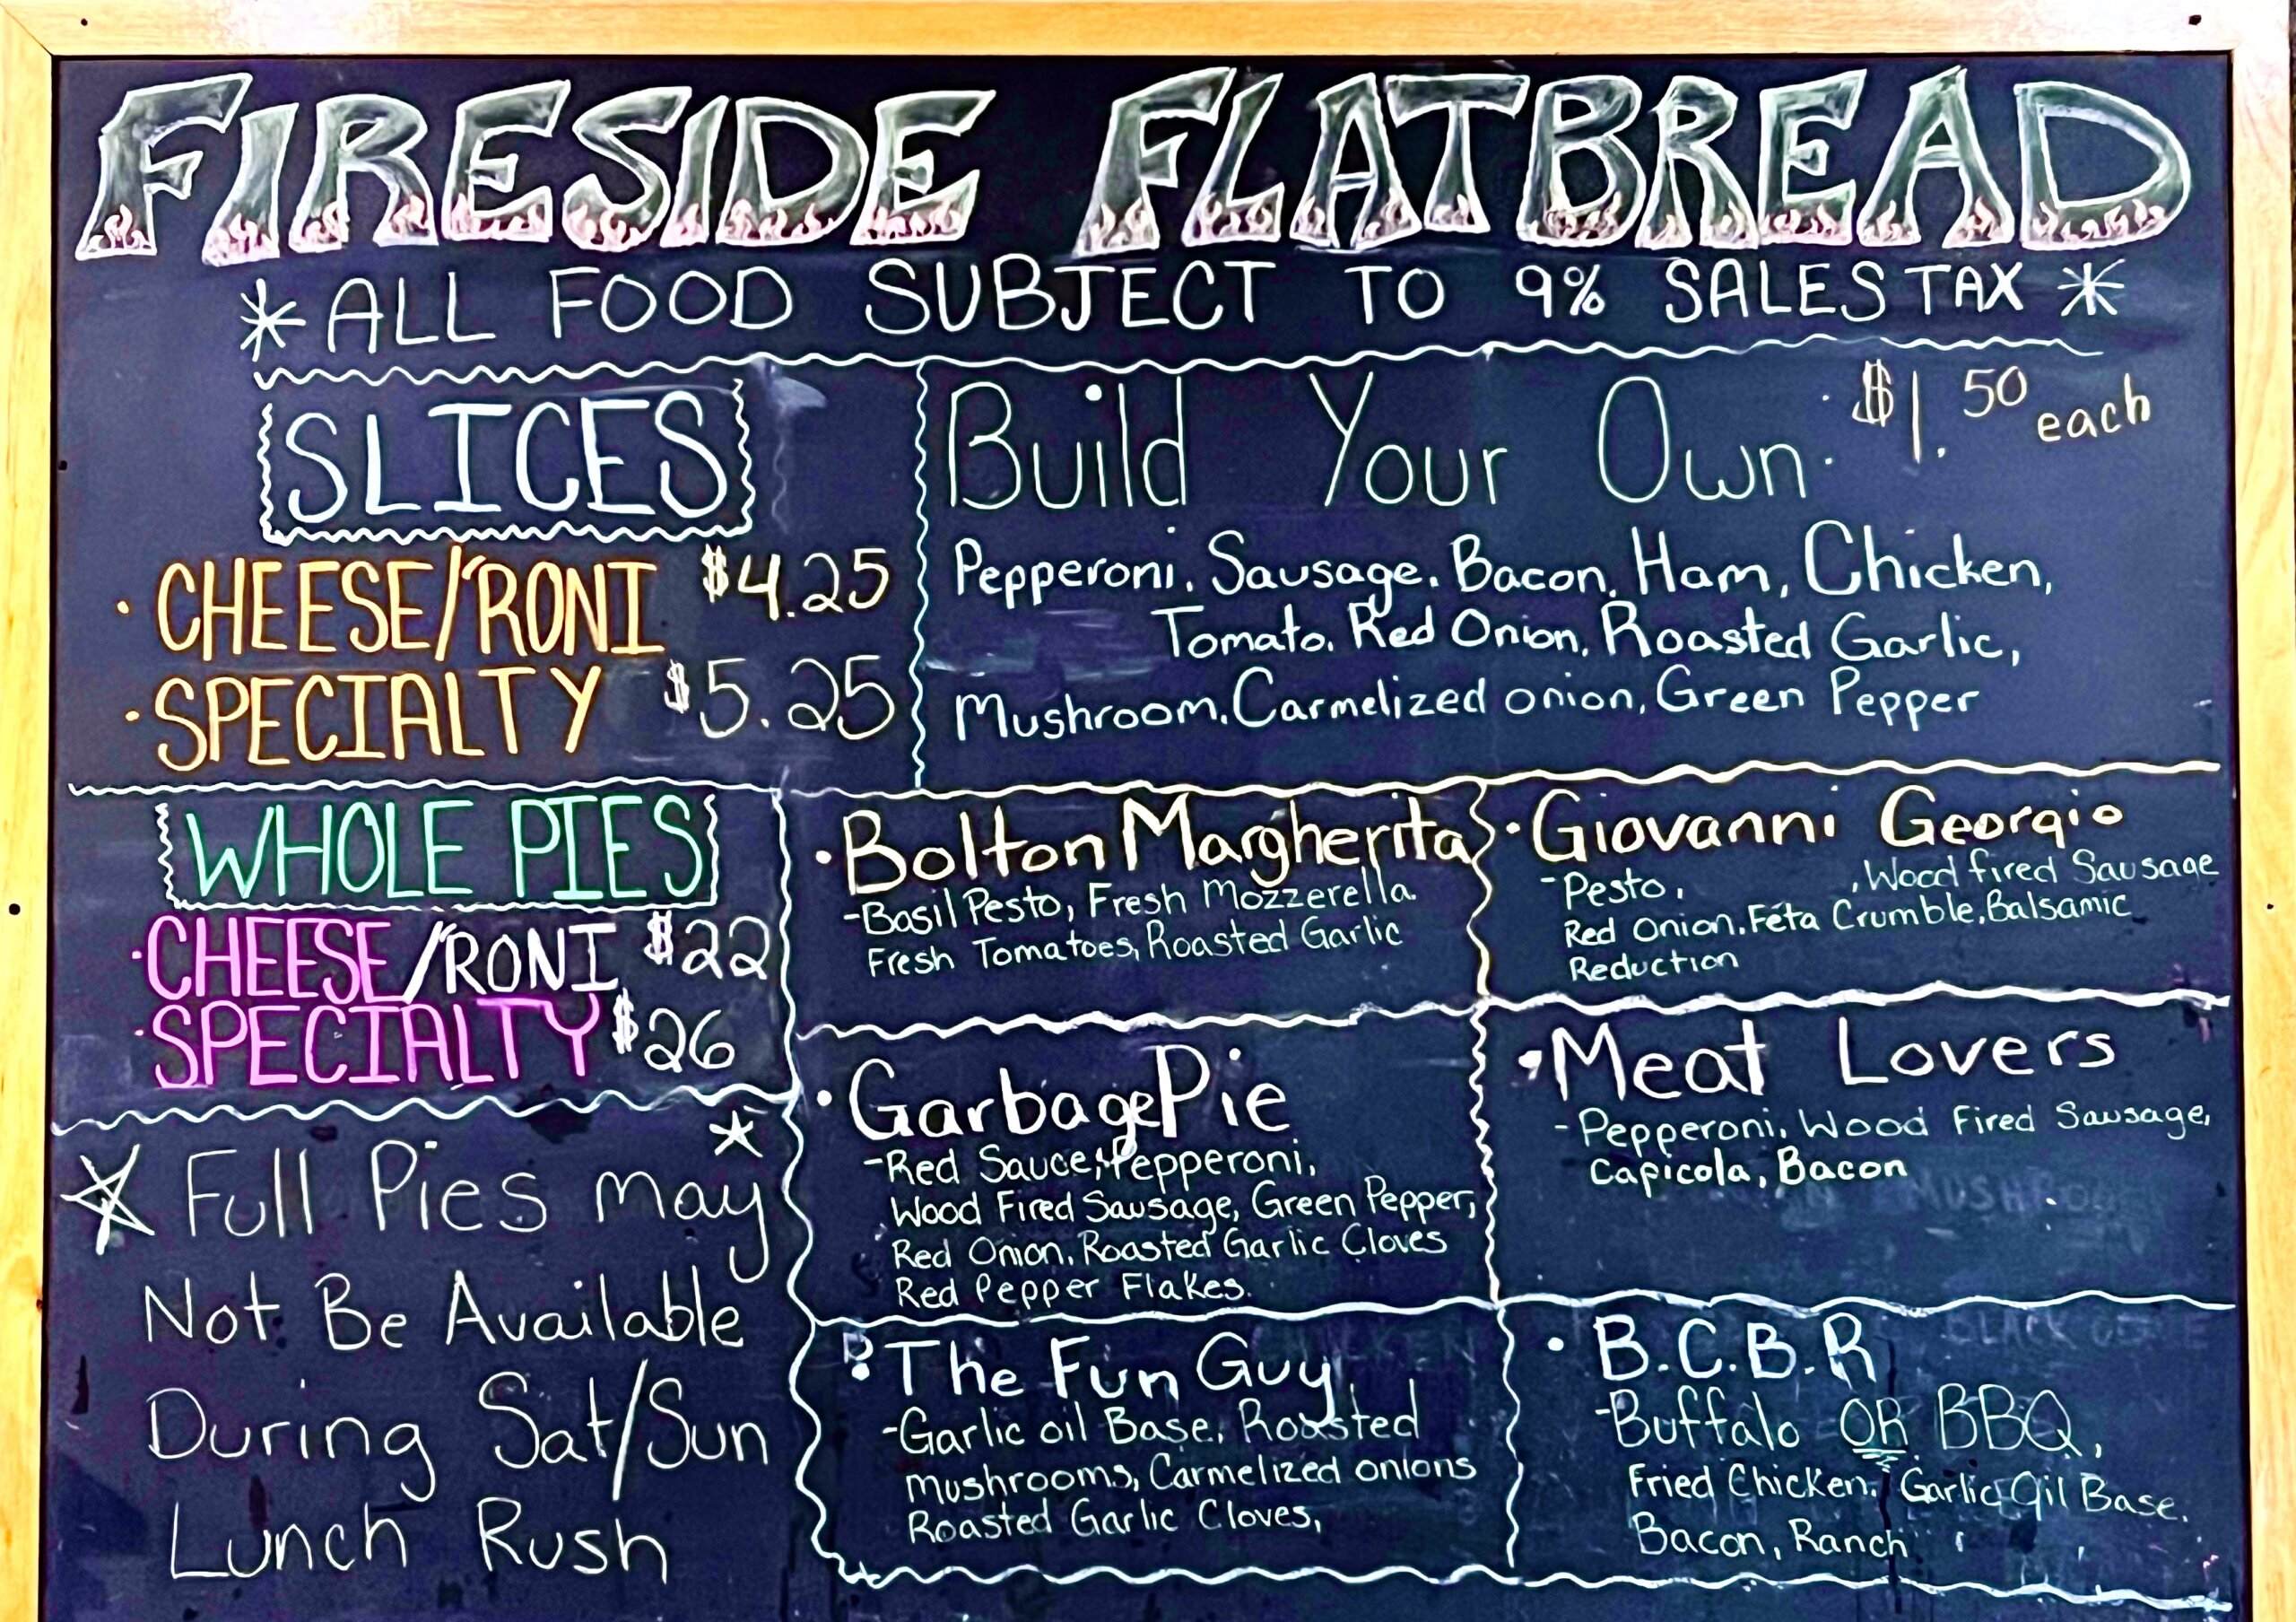 FIRESIDE FLATBREAD
*ALL FOOD SUBJECT TO 9% SALES TAX*
SLICES
· CHEESE/'RONI $4.25
· SPECIALTY $5.25
Build Your Own. $1.50 each
Pepperoni, Sausage, Bacon, Ham, Chicken,
Tomato, Red Onion, Roasted Garlic,
Mushroom, Carmelized onion, Green Pepper
WHOLE PIES
· CHEESE/'RONI $22
· SPECIALTY $26
* Full Pies may *
Not Be Available
During Sat/Sun
Lunch Rush
· Bolton Margherita
- Basil Pesto, Fresh Mozzerella.
Fresh Tomatoes, Roasted Garlic
· Giovanni Georgio
- Pesto, , Wood fired Sausage
Red Onion, Feta Crumble, Balsamic
Reduction
· Garbage Pie
- Red Sauce, Pepperoni,
Wood Fired Sausage, Green Pepper,
Red Onion, Roasted Garlic Cloves
Red Pepper Flakes.
· Meat Lovers
- Pepperoni, Wood Fired Sausage,
Capicola, Bacon
· The Fun Guy
- Garlic oil Base, Roasted
mushrooms, Carmelized onions
Roasted Garlic Cloves,
· B.C.B.R
- Buffalo OR BBQ,
Fried Chicken, Garlic Oil Base,
Bacon, Ranch